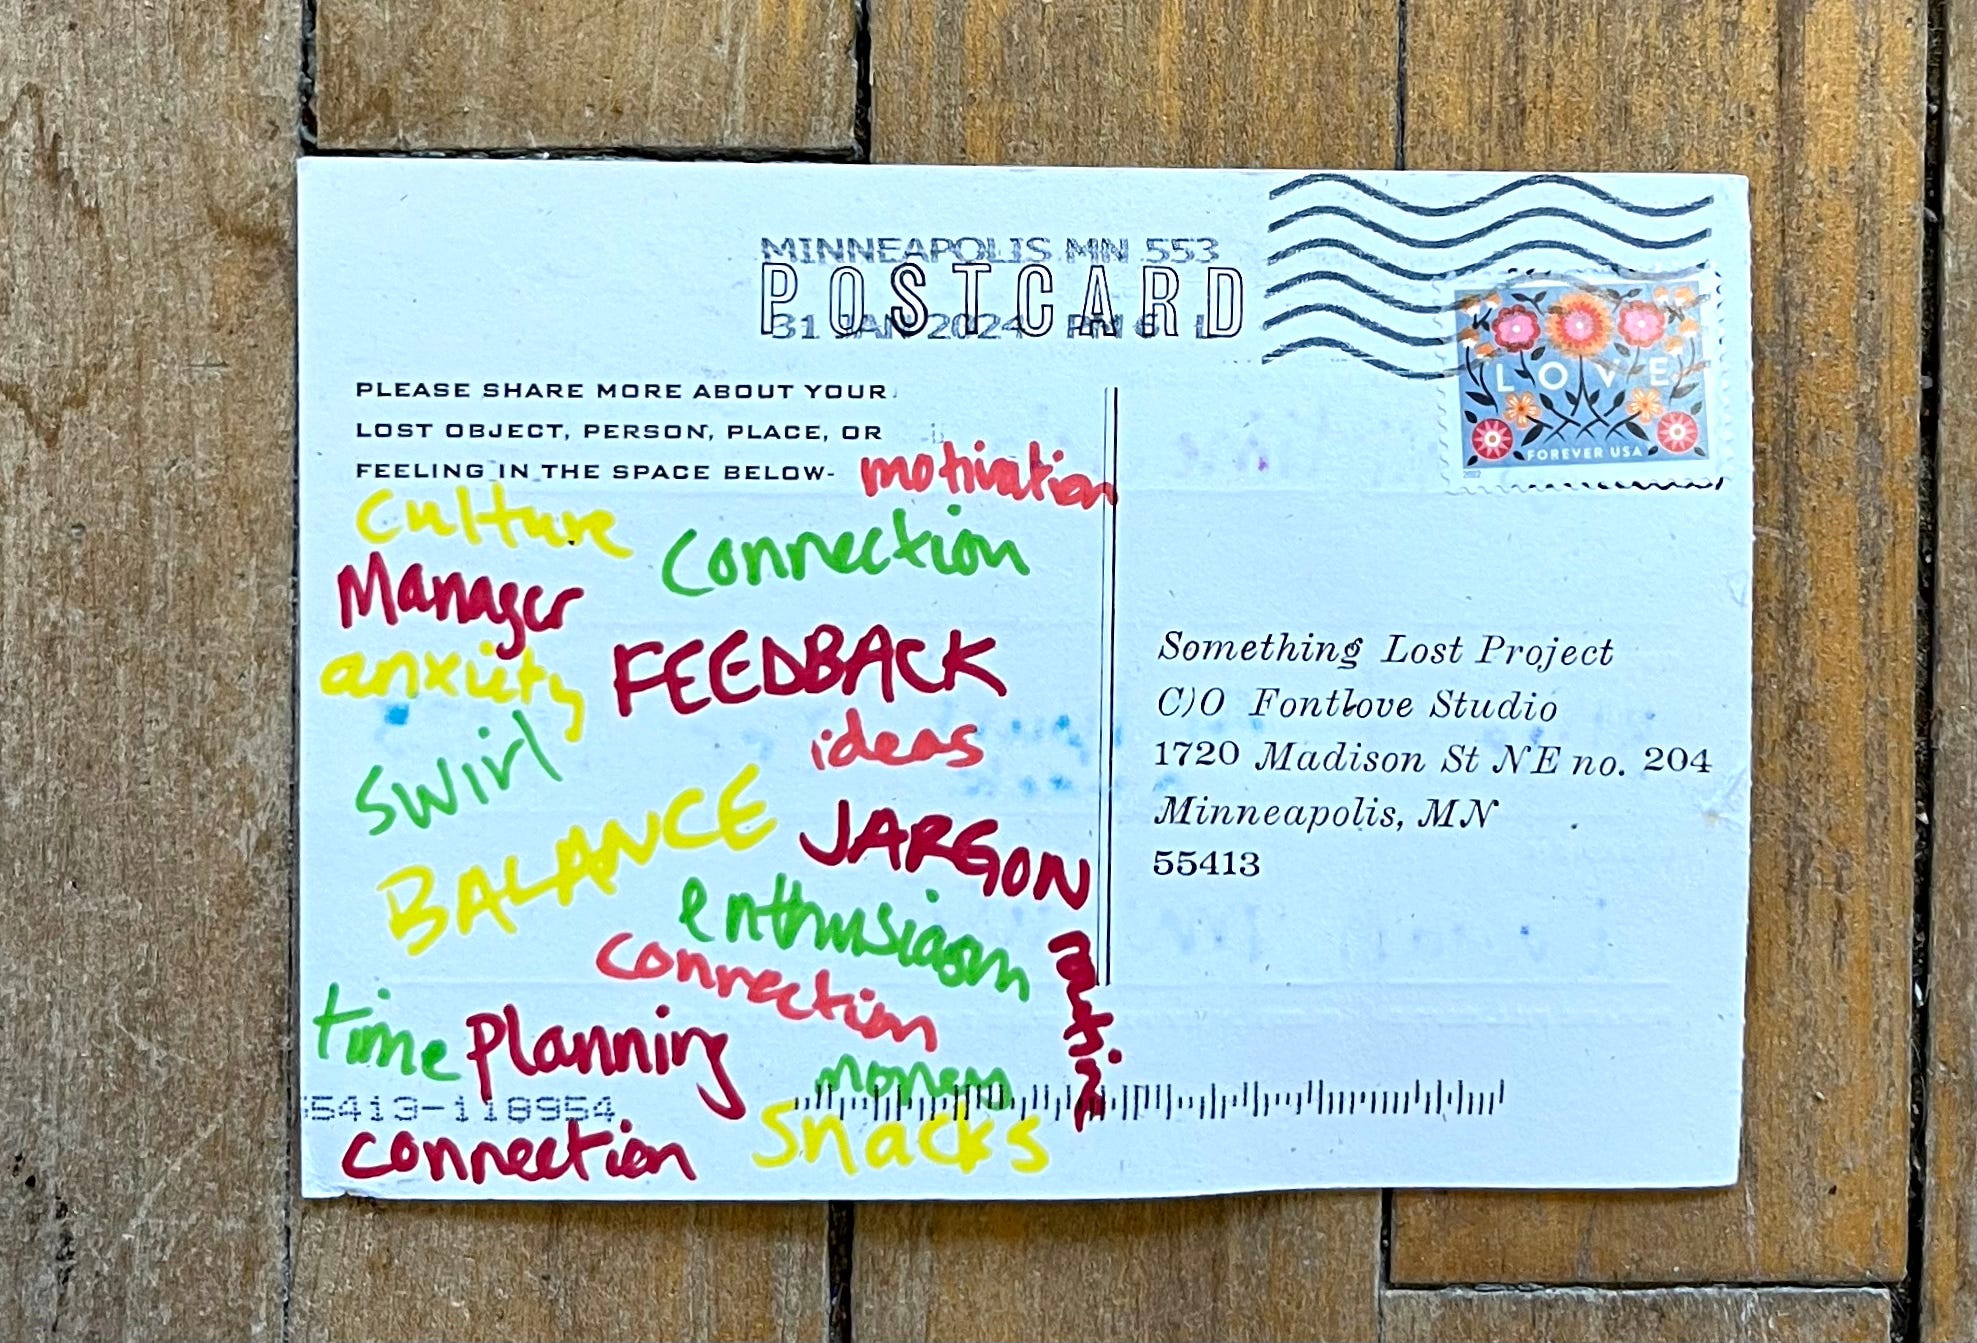 MINNEAPOLIS MN 553
POSTCARD
31 JAN 2024 PM 6 L
LOVE
FOREVER USA
2022
PLEASE SHARE MORE ABOUT YOUR
LOST OBJECT, PERSON, PLACE, OR
FEELING IN THE SPACE BELOW-
motivation
culture
connection
Manager
anxiety
FEEDBACK
ideas
swirl
BALANCE
JARGON
enthusiasm
connection
routine
time
planning
money
55413-118954
snacks
connection
Something Lost Project
C/O Fontlove Studio
1720 Madison St NE no. 204
Minneapolis, MN
55413